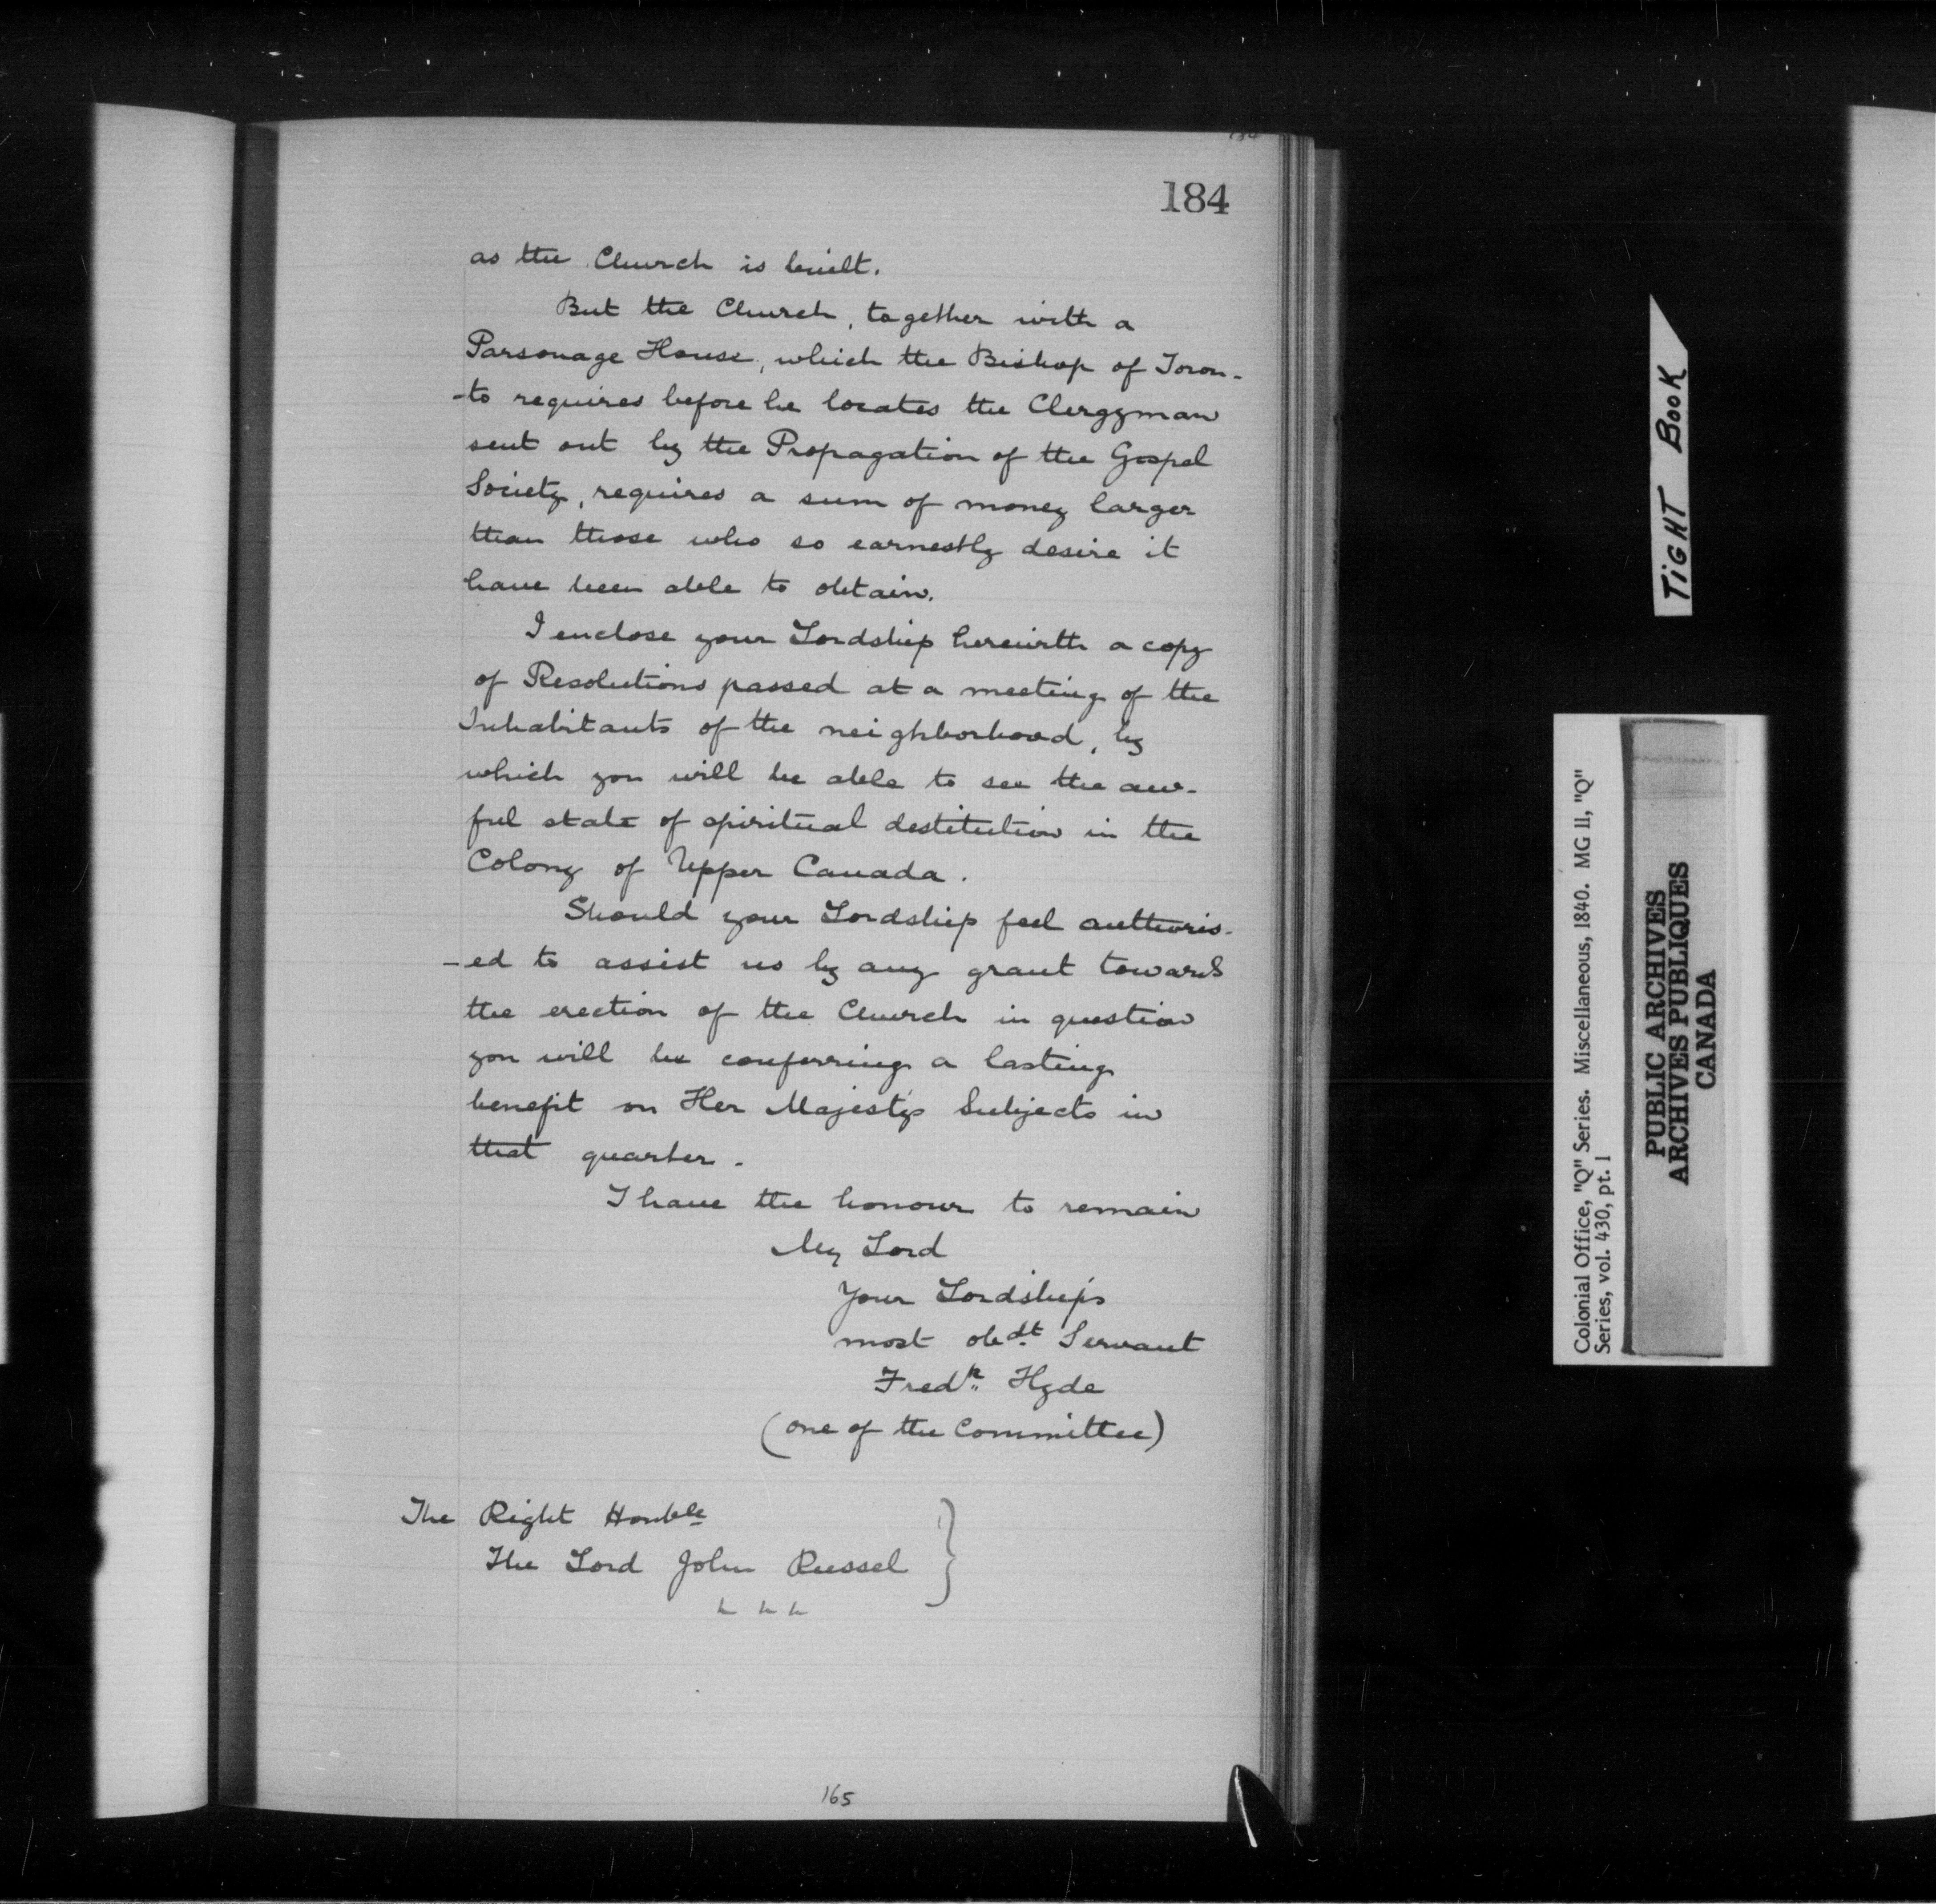 184
as the Church is built.
But the Church, together with a
Parsonage House, which the Bishop of Toron-
-to requires before he locates the Clergyman
sent out by the Propagation of the Gospel
Society, requires a sum of money larger
than those who so earnestly desire it
have been able to obtain.
I enclose your Lordship herewith a copy
of Resolutions passed at a meeting of the
Inhabitants of the neighborhood, by
which you will be able to see the aw-
ful state of spiritual destitution in the
Colony of Upper Canada.
Should your Lordship feel authoris-
-ed to assist us by any grant towards
the erection of the Church in question
you will be conferring a lasting
benefit on Her Majesty's Subjects in
that quarter.
I have the honour to remain
My Lord
Your Lordship's
most obdt Servant
Fredk Hyde
(one of the Committee)
The Right Honble
The Lord John Russel }
165
TIGHT BOOK
Colonial Office, "Q" Series. Miscellaneous, 1840. MG 11, "Q"
Series, vol. 430, pt. 1
PUBLIC ARCHIVES
ARCHIVES PUBLIQUES
CANADA